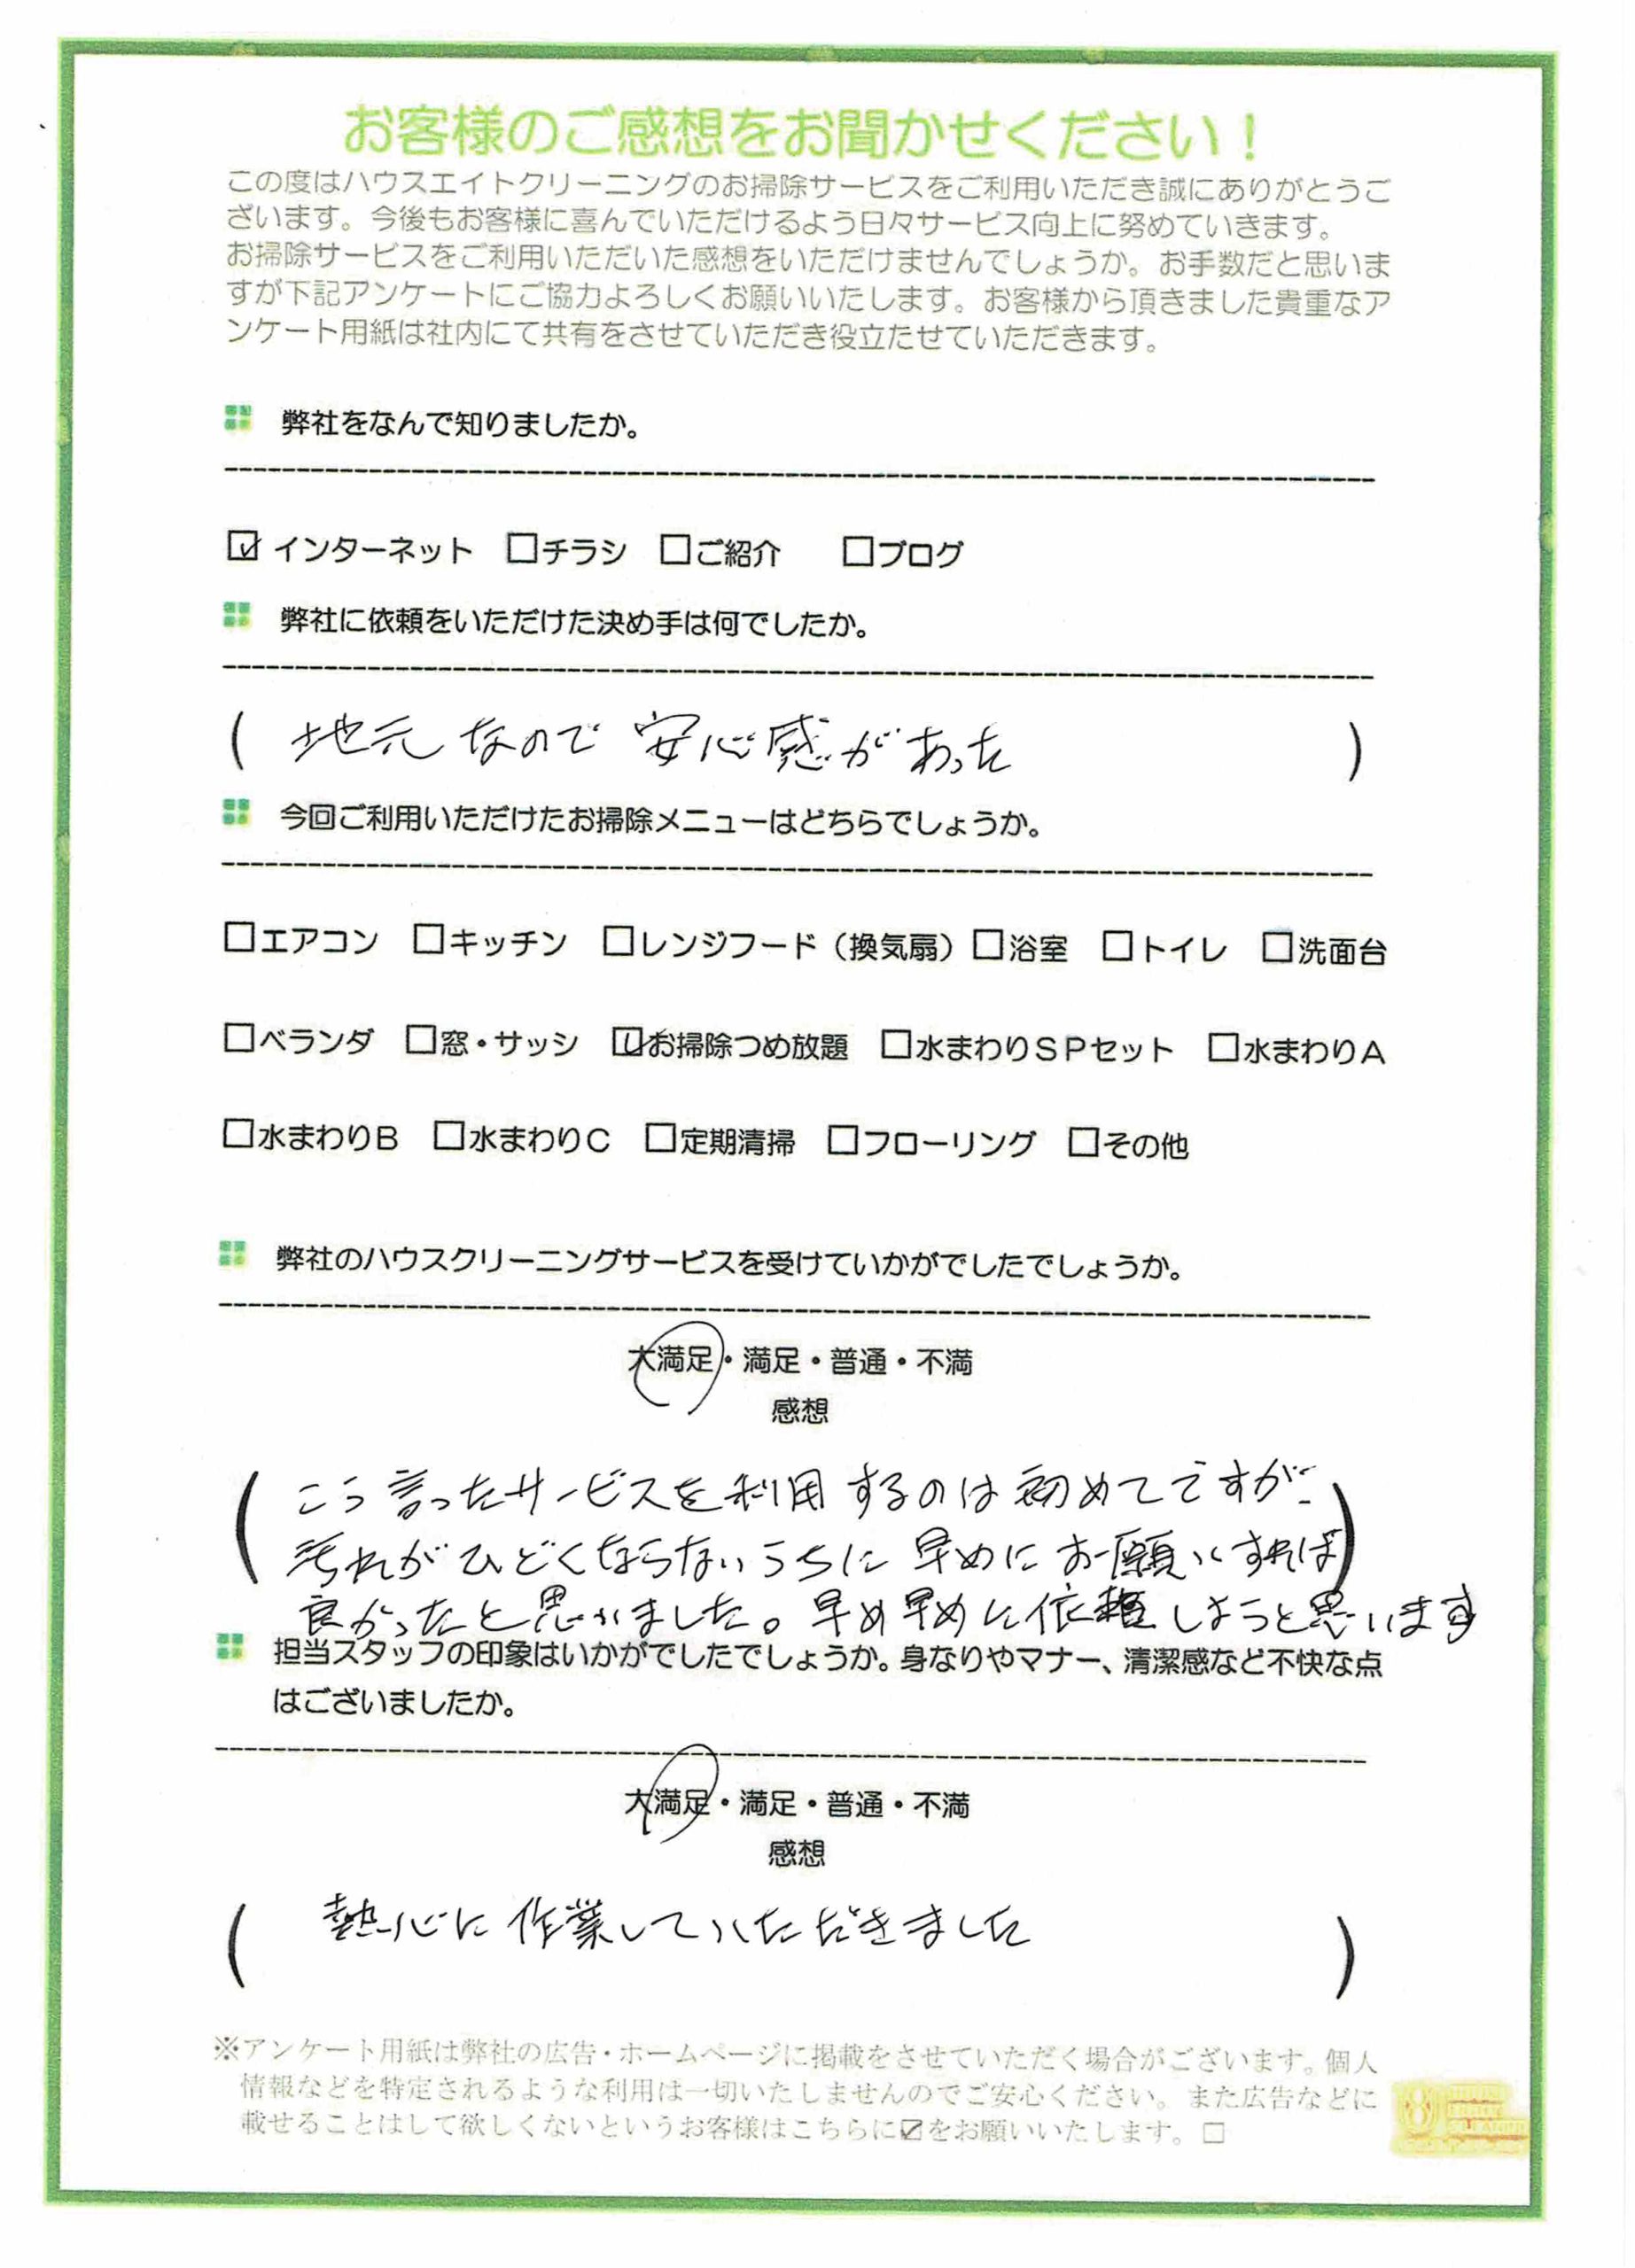 お客様のご感想をお聞かせください！
この度はハウスエイトクリーニングのお掃除サービスをご利用いただき誠にありがとうご
ざいます。今後もお客様に喜んでいただけるよう日々サービス向上に努めていきます。
お掃除サービスをご利用いただいた感想をいただけませんでしょうか。お手数だと思いま
すが下記アンケートにご協力よろしくお願いいたします。お客様から頂きました貴重なア
ンケート用紙は社内にて共有をさせていただき役立たせていただきます。
弊社をなんで知りましたか。
☑インターネット □チラシ □ご紹介 □ブログ
弊社に依頼をいただけた決め手は何でしたか。
（ 地元なので安心感があった ）
今回ご利用いただけたお掃除メニューはどちらでしょうか。
□エアコン □キッチン □レンジフード（換気扇）□浴室 □トイレ □洗面台
□ベランダ □窓・サッシ ☑お掃除つめ放題 □水まわりＳＰセット □水まわりＡ
□水まわりＢ □水まわりＣ □定期清掃 □フローリング □その他
弊社のハウスクリーニングサービスを受けていかがでしたでしょうか。
大満足・満足・普通・不満
感想
（ こう言ったサービスを利用するのは初めてですが、
汚れがひどくならないうちに早めにお願いすれば ）
良かったと思いました。早め早めに依頼しようと思います
担当スタッフの印象はいかがでしたでしょうか。身なりやマナー、清潔感など不快な点
はございましたか。
大満足・満足・普通・不満
感想
（ 熱心に作業していただきました ）
※アンケート用紙は弊社の広告・ホームページに掲載をさせていただく場合がございます。個人
情報などを特定されるような利用は一切いたしませんのでご安心ください。また広告などに
載せることはして欲しくないというお客様はこちらに☑をお願いいたします。□